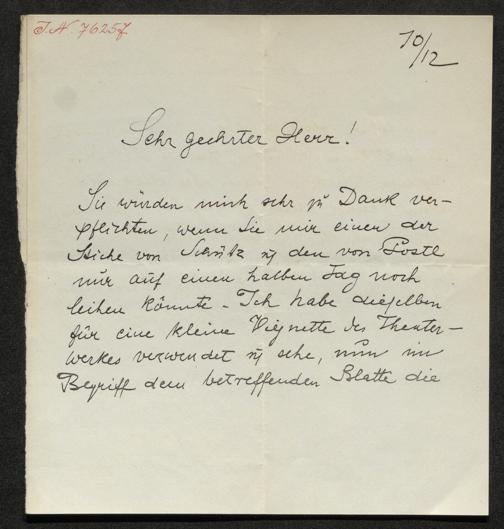 J.N. 76257
10/12
Sehr geehrter Herr!
Sie würden mich sehr zu Dank ver-
pflichten, wenn Sie mir einen der
Stiche von Schütz u den von Postl
nur auf einen halben Tag noch
leihen könnte - Ich habe dieselben
für eine kleine Vignette des Theater-
werkes verwendet u sehe, nun im
Begriff dem betreffenden Blatte die